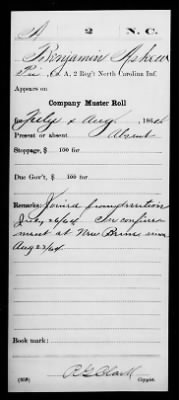 A 2 N. C.
Benjamin Askew
Pvt Co. A, 2 Reg't North Carolina Inf.
Appears on
Company Muster Roll
for July & Aug, 1864
Present or absent Absent
Stoppage, $ 100 for
Due Gov't, $ 100 for
Remarks: Joined from desertion
July 26/64 In confine
ment at New Berne since
Aug 22/64
Book mark:
(858) Copyist.